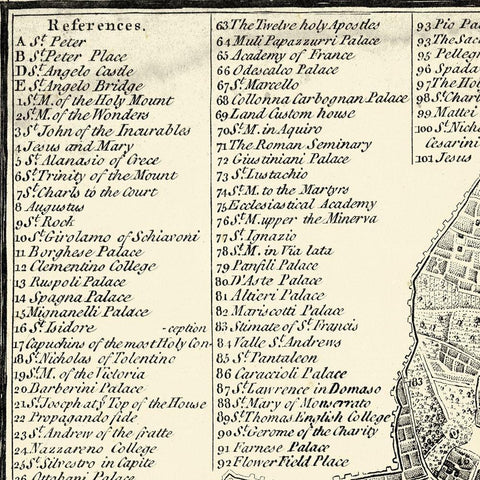 References.
A St. Peter
B St. Peter Place
D St. Angelo Castle
E St. Angelo Bridge
1 St. M. of the Holy Mount
2 St. M. of the Wonders
3 St. John of the Incurables
4 Jesus and Mary
5 St. Alanasio of Grece
6 St. Trinity of the Mount
7 St. Charls to the Court
8 Augustus
9 St. Rock
10 St. Girolamo of Schiavoni
11 Borghese Palace
12 Clementino College
13 Ruspoli Palace
14 Spagna Palace
15 Mignanelli Palace
16 St. Isidore -ception
17 Capuchins of the most Holy Con-
18 St. Nicholas of Tolentino
19 St. M. of the Victoria
20 Barberini Palace
21 St. Joseph at ye Top of the House
22 Propagando fide
23 St. Andrew of the fratte
24 Nazzareno College
25 St. Silvestro in Capite
26 Ottobani Palace
63 The Twelve holy Apostles
64 Muli Papazzurri Palace
65 Academy of France
66 Odescalco Palace
67 St. Marcello
68 Collonna Carbognan Palace
69 Land Custom house
70 St. M. in Aquiro
71 The Roman Seminary
72 Giustiniani Palace
73 St. Eustachio
74 St. M. to the Martyrs
75 Ecclesiastical Academy
76 St. M. upper the Minerva
77 St. Ignazio
78 St. M. in Via lata
79 Panfili Palace
80 D'Aste Palace
81 Altieri Palace
82 Mariscotti Palace
83 Stimate of St. Francis
84 Valle St. Andrews
85 St. Pantaleon
86 Caraccioli Palace
87 St. Lawrence in Domaso
88 St. Mary of Monserrato
89 St. Thomas English College
90 St. Gerome of the Charity
91 Farnese Palace
92 Flower Field Place
93 Pio Pa
93 The Sac
95 Pellegr
96 Spada
97 The Hol
98 St. Charl
99 Mattei
100 St. Nich
Cesarini
101 Jesus
183